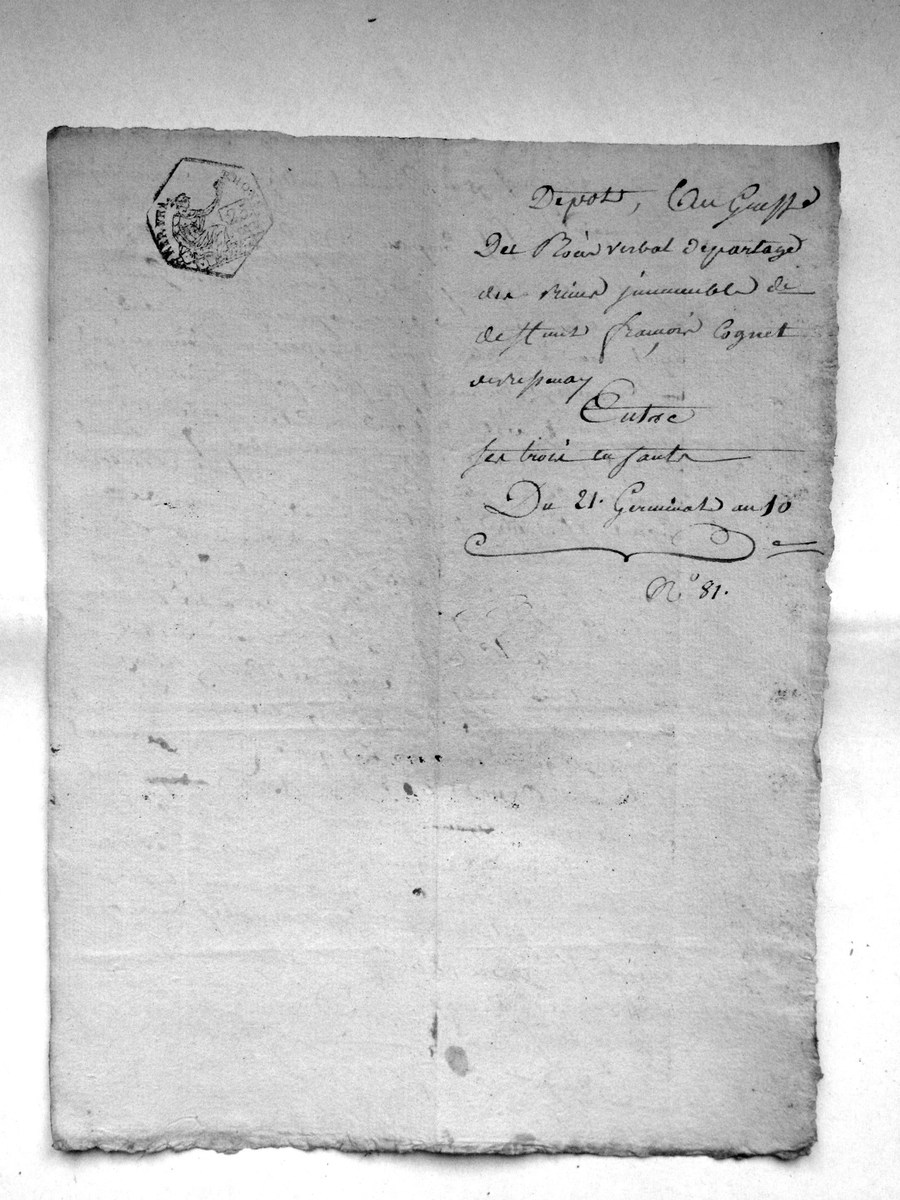 RHO
REP. FRA
Depots, Au Greffe
Del Procès verbal departage
des Biens jmmeuble de
defunt françois Cognet
Entre
ses trois enfants
Du 21. Germinal an 10
N° 81.